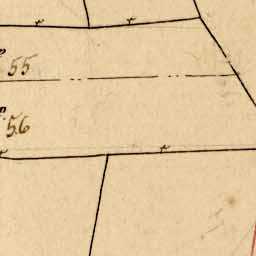 55
56